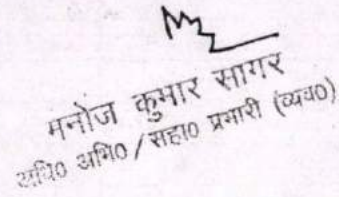 मनोज कुमार सागर
अधि0 अभि0 / सहा0 प्रभारी (व्यव0)